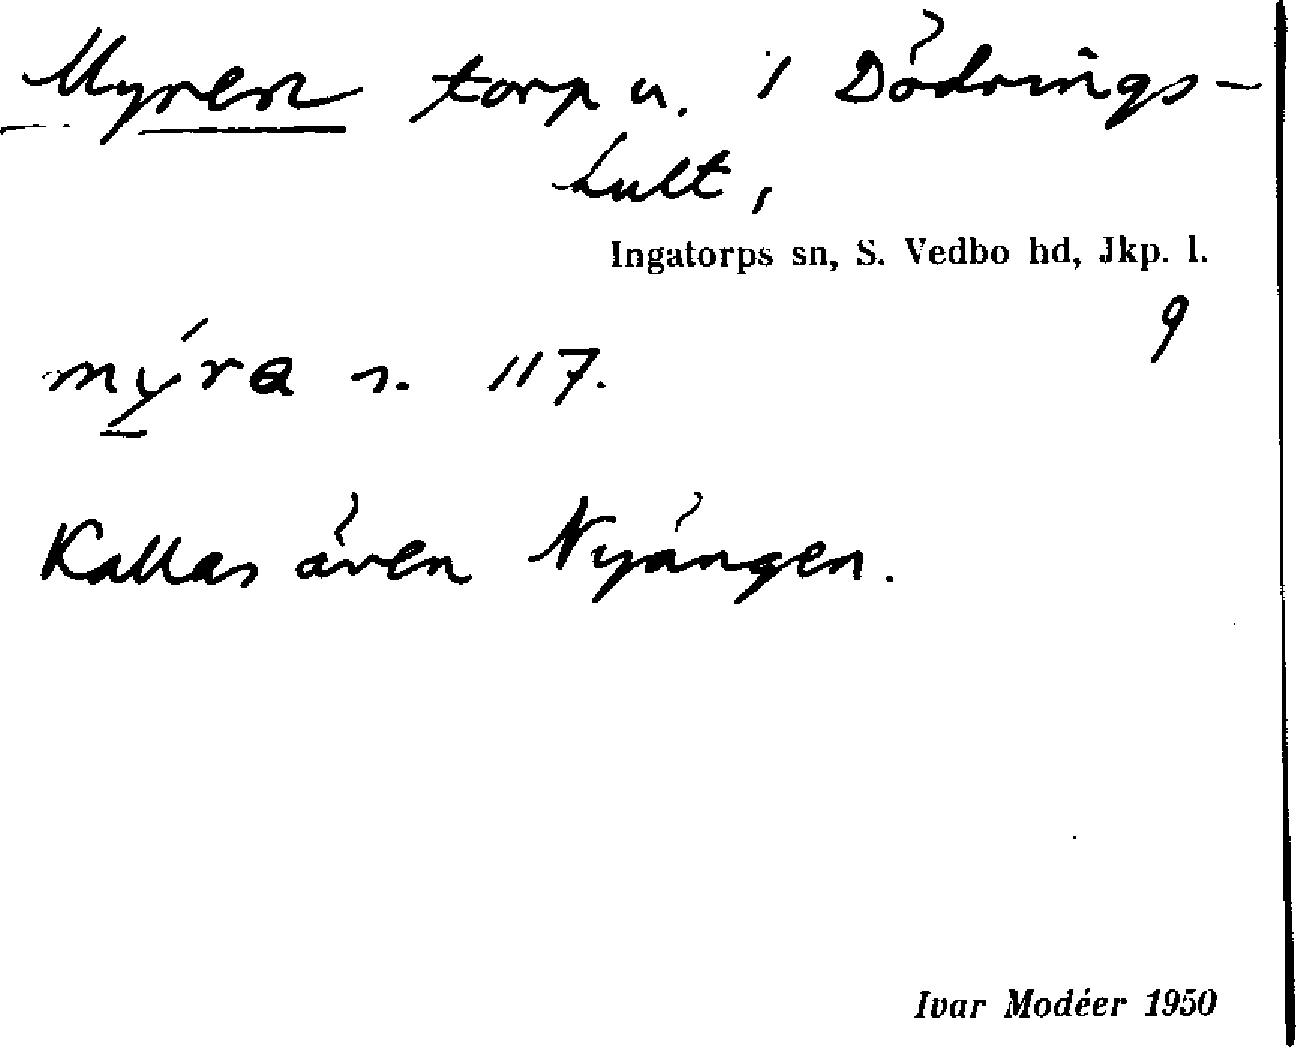 Myren torp u. 1 Dödrings-
hult,
Ingatorps sn, S. Vedbo hd, Jkp. l.
9
mýra s. 117.
Kallas även Nyängen.
Ivar Modéer 1950